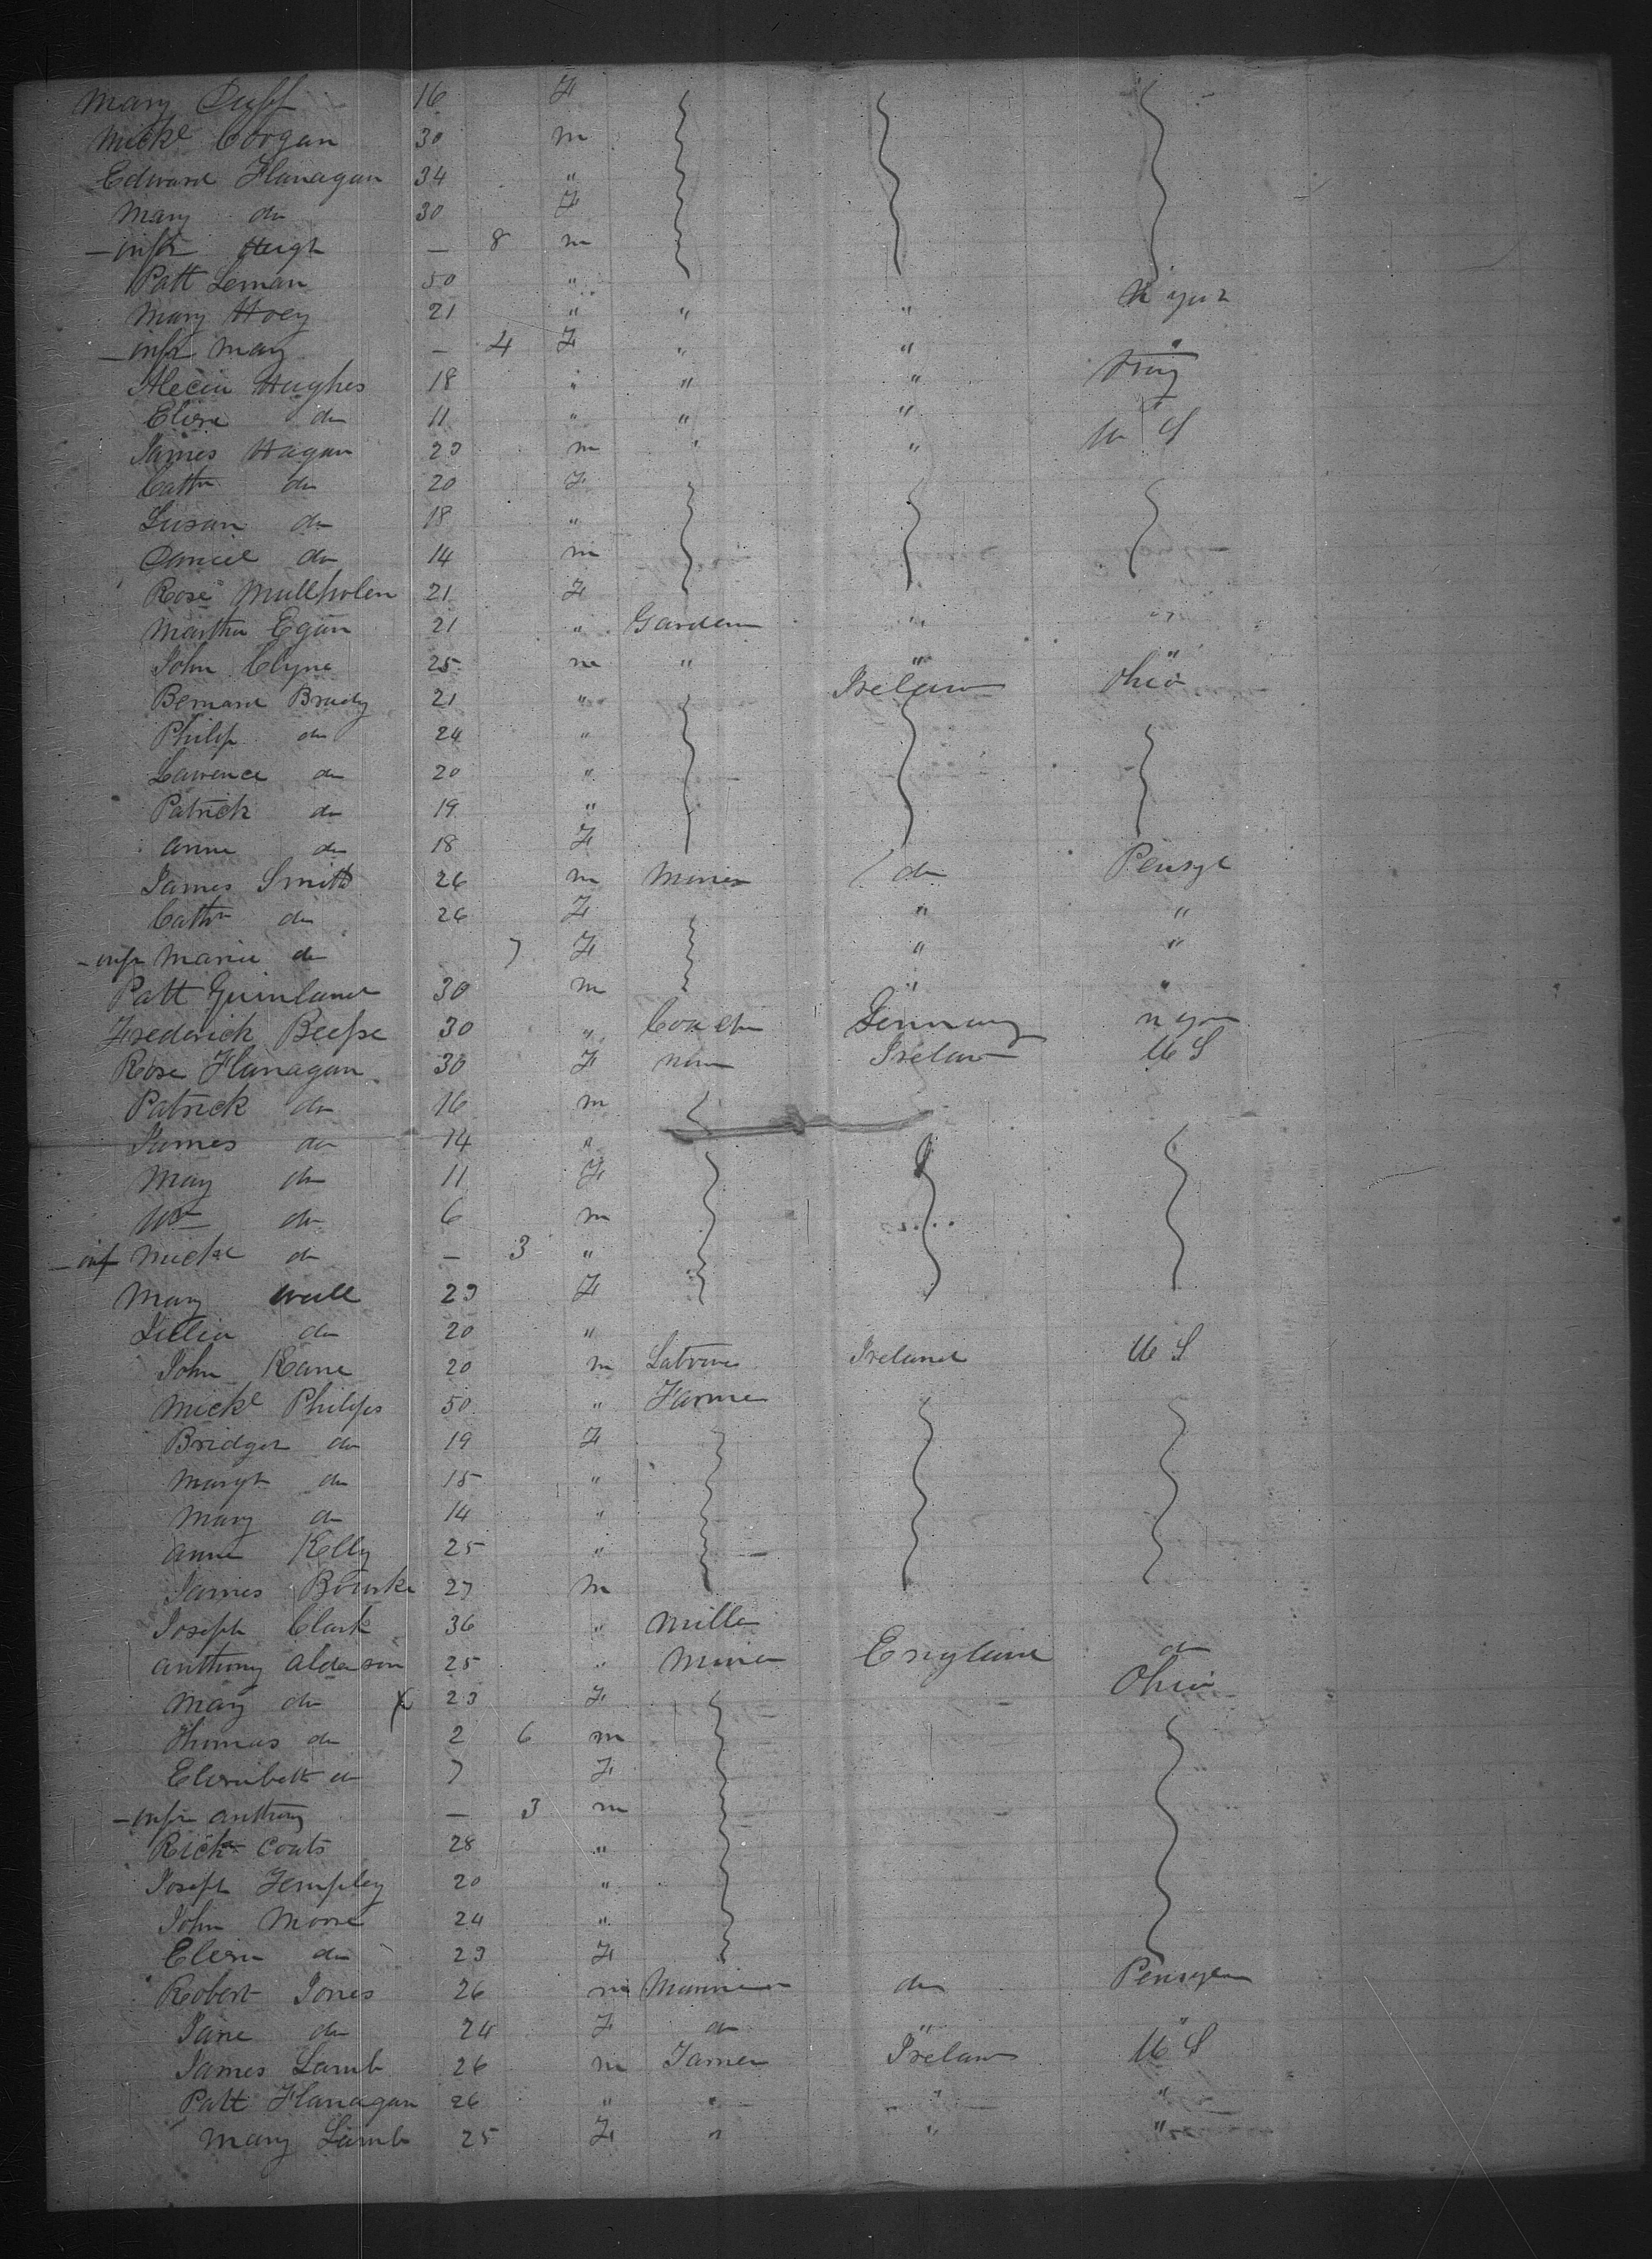 Mary Duff 16 F
Mickl Corgan 30 m
Edward Flanagan 34 "
Mary do 30 F
- inft Hugh — 8 m
Patt Leman 50 " N York
Mary Hoey 21 " " "
- inft Mary — 4 F " " "
Alecia Hughes 18 " " " Troy
Eliza do 11 " " " "
James Hagan 23 m " " U S
Cathn do 20 F
Susan do 18 "
Daniel do 14 m
Rose Mullholen 21 F
Martha Egan 21 " Garden " "
John Clyne 25 m " " "
Bernard Brady 21 " Ireland Ohio
Philip do 24 "
Lawrence do 20 "
Patrick do 19 "
Anne do 18 F
James Smith 26 m Miner do Pensyl
Cathn do 26 F " "
- inft Maria do 7 F " "
Patt Quinland 30 m " "
Frederick 30 " Germany N York
Rose Flanagan 30 F none Ireland U S
Patrick do 16 m
James do 14 "
Mary do 11 F
Wm do 6 m
- inf Mickl do — 3 "
Mary Wall 23 F
Julia do 20 "
John Kane 20 m Labourer Ireland U S
Mickl Philips 50 " Farmer "
Bridget do 19 F
Margt do 15 "
Mary do 14 "
Anne Kelly 25 "
James Bourke 27 m
Joseph Clark 36 " Miller
Anthony Alderson 25 " Miner England do
Mary do X 23 F Ohio
Thomas do 2 6 m
Elizabeth do 7 F
- inft Anthony — 3 m
Richd Coats 28 "
Joseph Templey 20 "
John Moore 24 "
Eliza do 23 F
Robert Jones 26 m Mariner do Pensylva
Jane do 24 F do " "
James Lamb 26 m Farmer Ireland U S
Patt Flanagan 26 " " " "
Mary Lamb 25 F " " "